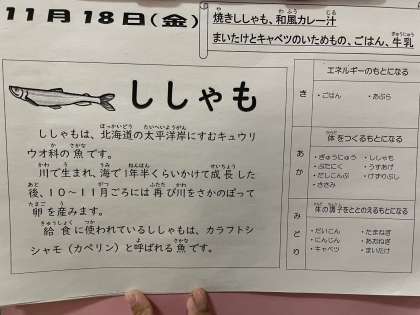 11月18日(金)
焼きししゃも、和風カレー汁
まいたけとキャベツのいためもの、ごはん、牛乳
ししゃも
ししゃもは、北海道の太平洋岸にすむキュウリ
ウオ科の魚です。
川で生まれ、海で1年半くらいかけて成長した
後、10~11月ごろには再び川をさかのぼって
卵を産みます。
給食に使われているししゃもは、カラフトシ
シャモ(カペリン)と呼ばれる魚です。
き
エネルギーのもとになる
・ごはん ・あぶら
あか
体をつくるもとになる
・ぎゅうにゅう ・ししゃも
・ぶたにく ・うすあげ
・だしこんぶ ・けずりぶし
・ささみ
みどり
体の調子をととのえるもとになる
・だいこん ・たまねぎ
・にんじん ・あおねぎ
・キャベツ ・まいたけ